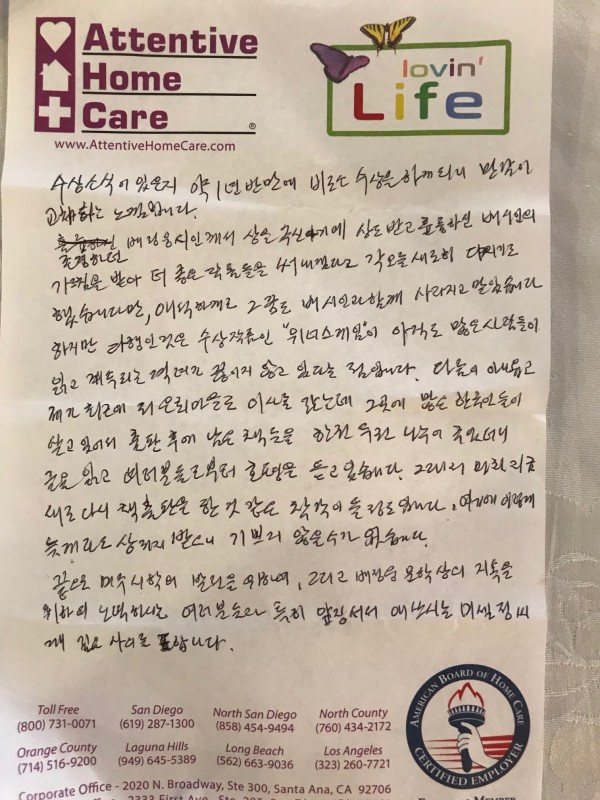 Attentive
Home
Care ®
www.AttentiveHomeCare.com
lovin'
Life
수상소식이 있은지 약 1년 반만에 비로소 수상을 하게되니 만감이
교차하는 느낌입니다.
존경하던
배정웅시인께서 상을 주신 상도 받고 훌륭하신 배시인의
가르침을 받아 더 좋은 작품들을 써내겠다고 각오를 새로히 다지기로
했습니다만, 애덕하게도 그 꿈도 배시인과 함께 사라지고 말았습니다
하지만 다행인것은 수상작품인 "위너스게임"이 아직도 많은 사람들이
읽고 계속되는 격려가 끊이지 않고 있다는 점입니다. 다음이 아니옵고
제가 최근에 저 은퇴마을로 이사를 갔는데 그곳에 많은 한국인들이
살고 있어서 출판 후에 남은 책들을 한권 두권 나누어 주었더니
글을 읽고 여러분들로부터 호평을 듣고 있습니다. 그래서 마치 지금
새로 다시 책출판을 한 것 같은 착각이 들 정도입니다. 여기에 이렇게
늦게라도 상까지 받으니 기쁘지 않을수가 없습니다.
끝으로 미주시학의 발전을 위하여, 그리고 배정웅 문학상의 지속을
위하여 노력하시는 여러분들과 특히 앞장서서 애쓰시는 미셸 정씨
께 깊은 사의를 표합니다.
Toll Free
(800) 731-0071
San Diego
(619) 287-1300
North San Diego
(858) 454-9494
North County
(760) 434-2172
Orange County
(714) 516-9200
Laguna Hills
(949) 645-5389
Long Beach
(562) 663-9036
Los Angeles
(323) 260-7721
AMERICAN BOARD OF HOME CARE
CERTIFIED EMPLOYER
Corporate Office - 2020 N. Broadway, Ste 300, Santa Ana, CA 92706